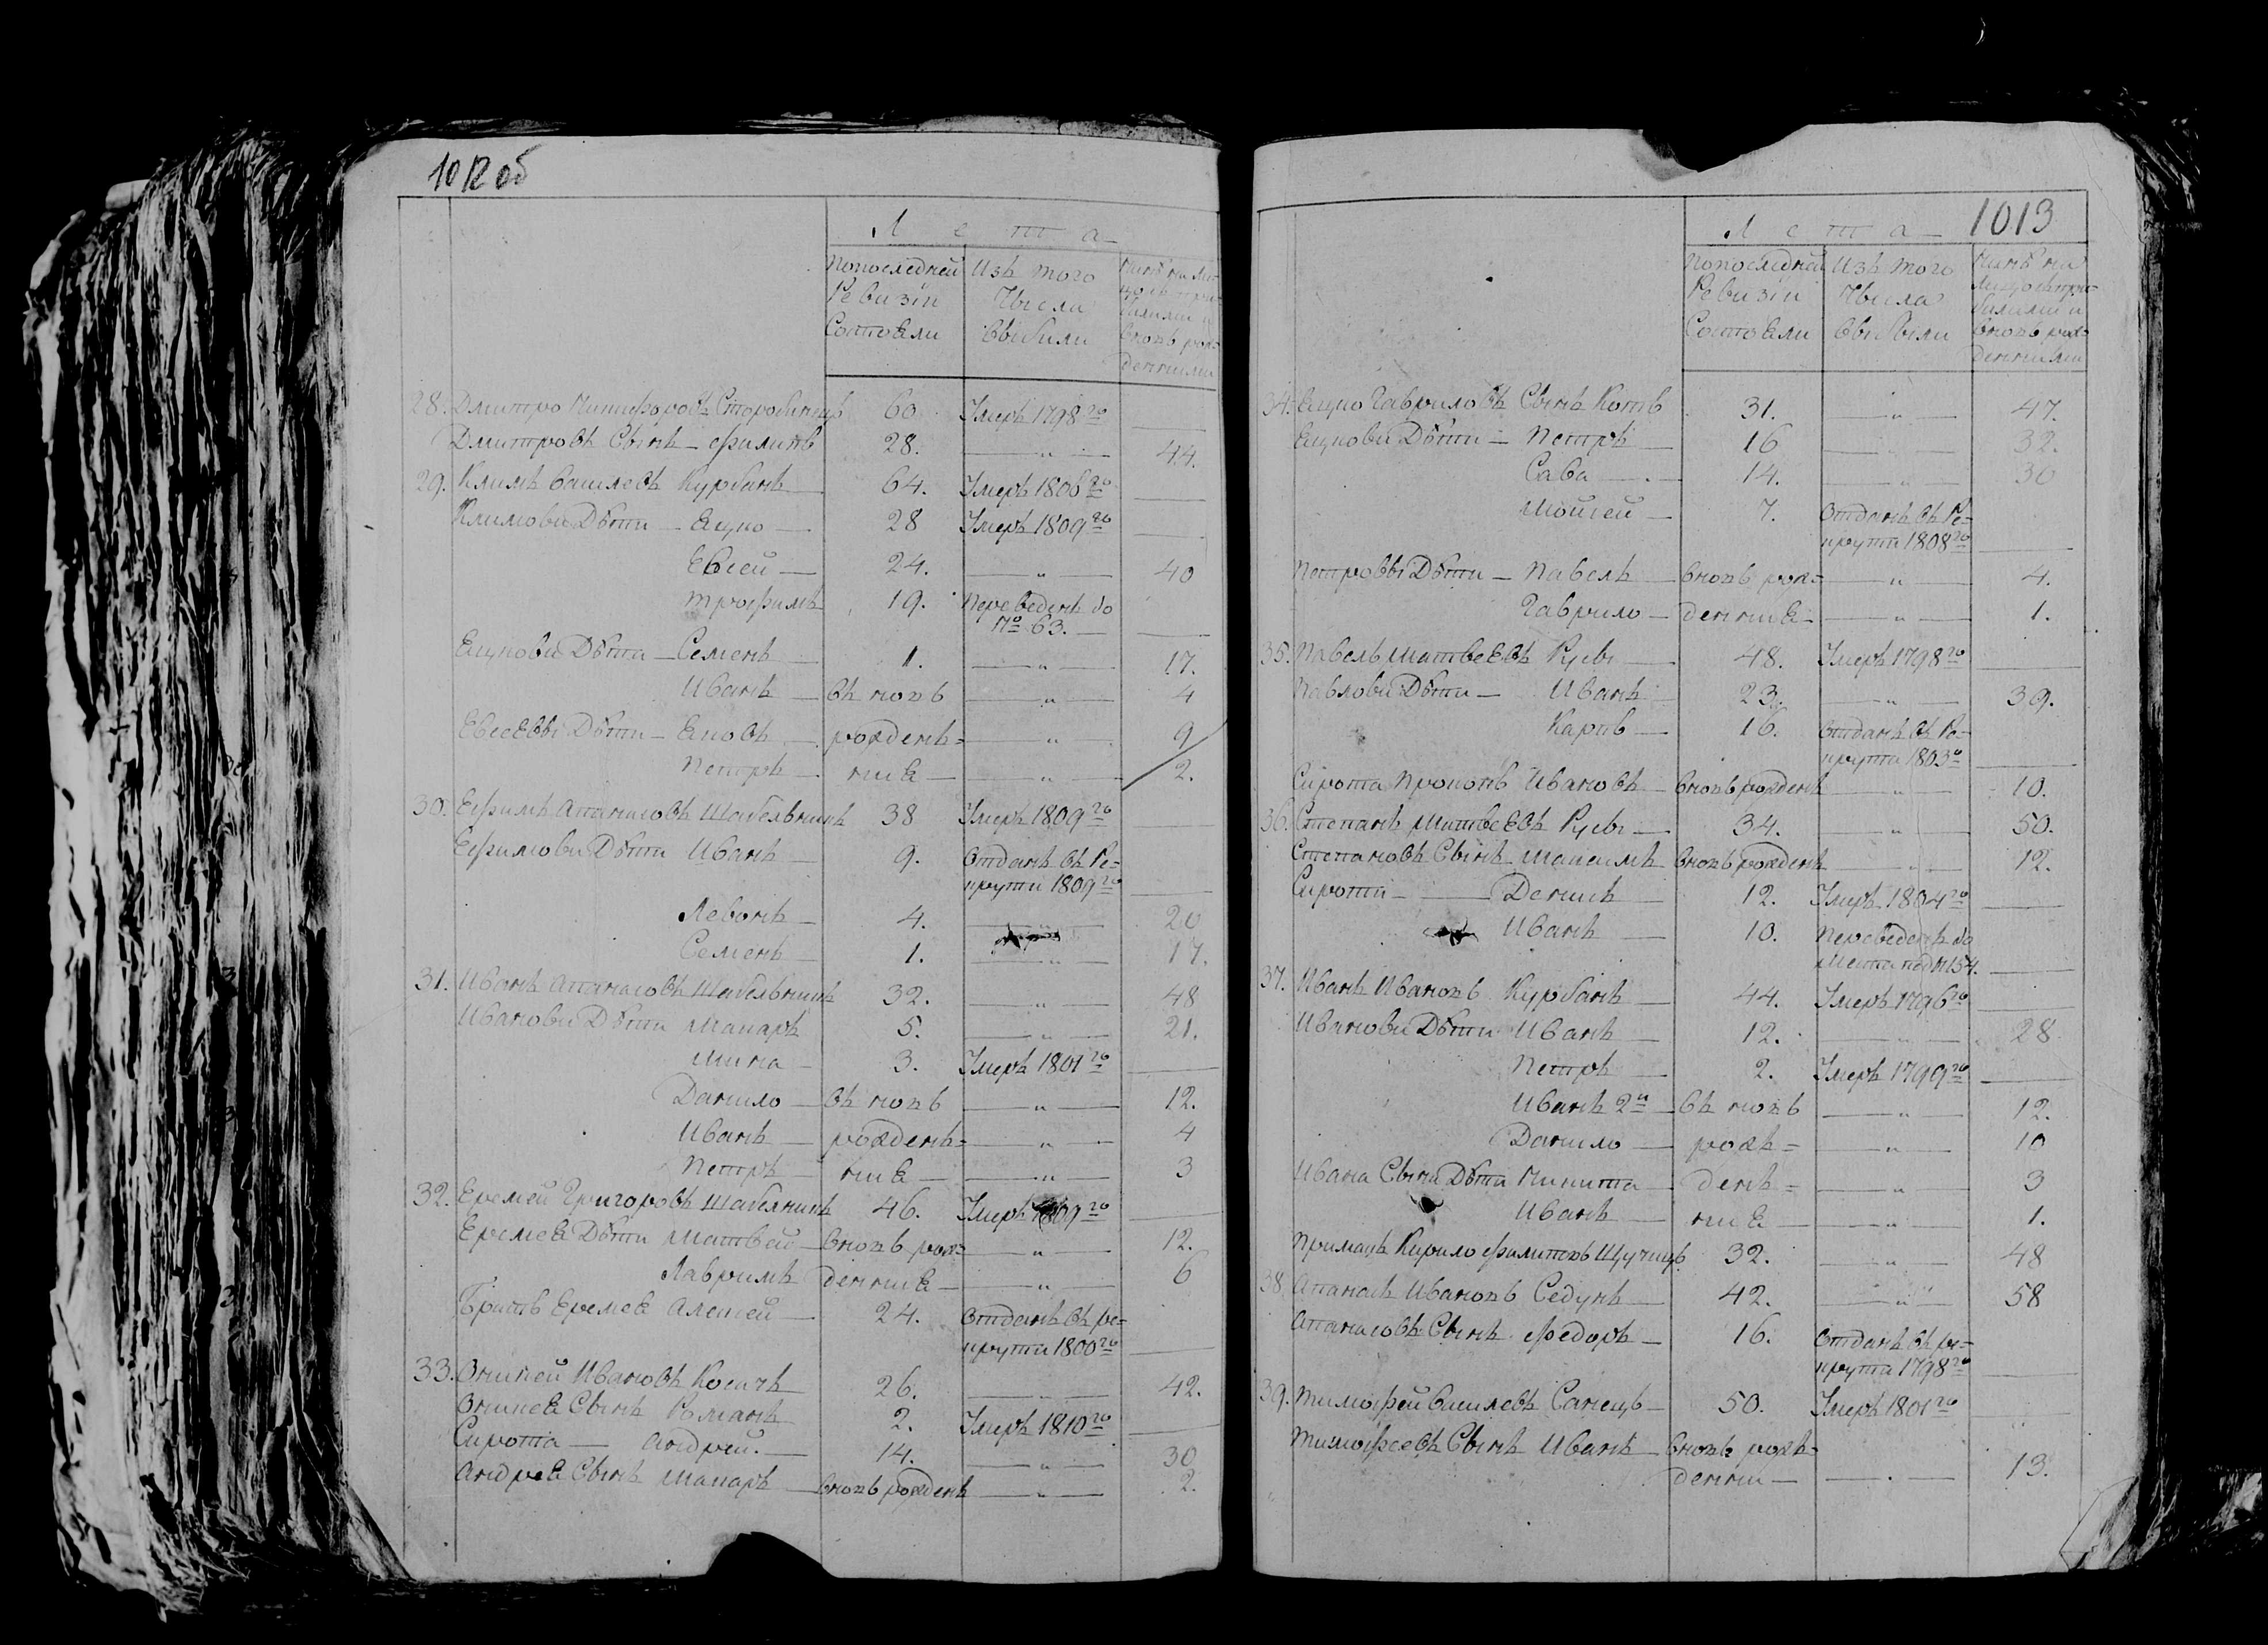 1012 об
Л е т а
Попоследней Изъ того
Ревизіи Числа
Состояли Выбыли
28. Дмитро Никифоровъ Старобинецъ 60. Умеръ 1798го
Дмитровъ Сынъ - Филипъ 28. — " — 44.
29. Климъ Василевъ Курбанъ — 64. Умеръ 1806го —
Климовы Дѣти - Яцко — 28 Умеръ 1809го —
Евсей — 24. — " — 40
Трофимъ 19. Переведенъ до
№ 63. —
Яцковы Дѣти - Семенъ — 1. — " — 17.
Иванъ — въ новь — " — 4
Евсѣевы Дѣти - Яковъ — рожденъ= — " — 9
Петръ — ные — — " — 2.
30. Ефимъ Апанасовъ Шабельникъ 38 Умеръ 1809го —
Ефимовы Дѣти Иванъ — 9. Отданъ въ Ре=
круты 1809го —
Левонъ — 4. — 20
Семенъ — 1. — " — 17.
31. Иванъ Апанасовъ Шабельникъ 32. — " — 48
Ивановы Дѣти Макаръ 5. — " — 21.
Мина — 3. Умеръ 1801го —
Данило — въ новь — " — 12.
Иванъ — рожденъ= — " — 4
Петръ — ные — — " — 3
32. Еремей Григоровъ Шабелникъ 46. Умеръ 1809го —
Еремея Дѣти Матвей — вновь рож= — " — 12.
Лавримъ денные — — " — 6
Братъ Еремея Алексей — 24. Отданъ въ ре=
круты 1800го —
33. Оникей Ивановъ Косачъ 26. — " — 42.
Оникея Сынъ Романъ 2. Умеръ 1810го —
Сирота — Андрей. — 14. — " — 30
Андрея Сынъ Макаръ — вновь рожденъ — " — 2.
Л е т а 1013
Попоследней Изъ того Нынѣ на
Ревизіи Числа лицо съ при=
Состояли Выбыли былыми и
вновь рож=
денными
34. Яцко Гавриловъ Сынъ Котъ 31. — " — 47.
Яцковы Дѣти - Петръ — 16 — " — 32.
Сава — 14. — " — 30
Мойсей — 7. Отданъ въ Ре=
круты 1808го —
Петровы Дѣти - Павелъ — вновь рож= — " — 4.
Гаврило — денные — — " — 1.
35. Павелъ Матвеевъ Русы — 48. Умеръ 1798го —
Павловы Дѣти - Иванъ 23. — " — 39.
Карпъ — 16. Отданъ въ Ре=
круты 1803о —
Сирота Прокопъ Ивановъ — вновь рожденъ — " — 10.
36. Степанъ Матвеевъ Русы — 34. — " — 50.
Степановъ Сынъ Макасимъ вновь рожденъ — " — 12.
Сироты — Денисъ — 12. Умеръ 1804го —
Иванъ — 10. Переведенъ до
Места под № 154. —
37. Иванъ Ивановъ Курбанъ — 44. Умеръ 1796го —
Ивановы Дѣти Иванъ — 12. — " — 28
Петръ — 2. Умеръ 1799го —
Иванъ 2й — въ новь — " — 12.
Данило — рожъ= — " — 10
Ивана Сына Дѣти Никита — денъ= — " — 3
Иванъ — ные — — " — 1.
Примакъ Кирило Филиповъ 32. — " — 48
38. Апанасъ Ивановъ Седунъ — 42. — " — 58
Апанасовъ Сынъ Федоръ — 16. Отданъ въ ре=
крута 1798го —
39. Тимофей Василевъ Санецъ — 50. Умеръ 1801го —
Тимофеевъ Сынъ Иванъ — вновь рожъ=
денны — — " — 13.